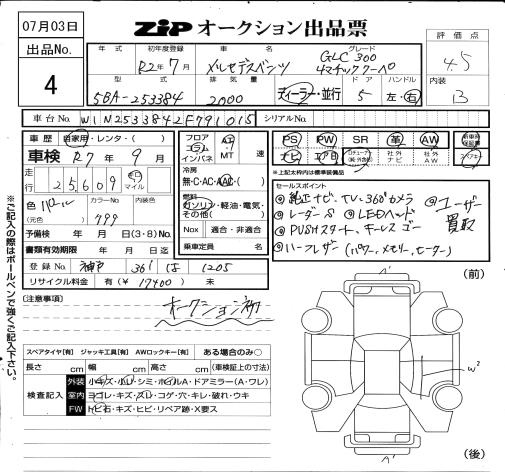 07月03日
ZIP オークション出品票
出品No.
4
評価点
4.5
内装
B
年式 初年度登録 車名 グレード
R2年7月 メルセデスベンツ GLC 300 4マチッククーペ
型式 排気量 ドア ハンドル
5BA-253384 2000 ディーラー・並行 5 左・右
車台No. W1N2533842F791015 シリアルNo.
車歴 自家用・レンタ・( )
車検 R7年9月
走行 25,609 km マイル
色 パール カラーNo. 799 内装色
(元色)
予備検 年 月 日(3・8)No.
書類有効期限 年 月 日迄
登録No. 神戸 361 は 1205
リサイクル料金 有(¥17400) 未
フロア コラム インパネ AT MT 速
冷房 無・C・AC・AAC・( )
燃料 ガソリン・軽油・電気・その他( )
Nox 適合・非適合
乗車定員 名
PS PW SR 革 AW 新車時保証書
ナビ エアB 社外ナビ 社外AW スペアキー
※上記太枠内は標準装備品
セールスポイント
◎純正ナビ、TV、360°カメラ
◎レーダーS ◎LEDヘッド
◎PUSHスタート、キーレスゴー
◎ハーフレザー(パワー、メモリー、ヒーター)
◎ユーザー買取
(注意事項)
オークション初
スペアタイヤ[有] ジャッキ工具[有] AWロックキー[有] ある場合のみ○
長さ cm 幅 cm 高さ cm (車検証上の寸法)
検査記入
外装 小キズ・小凹・シミ・ホイルA・ドアミラー(A・ワレ)
室内 ヨゴレ・キズ・スレ・コゲ・穴・キレ・破れ・ウキ
FW トビ石・キズ・ヒビ・リペア跡・X要ス
(前)
A'
W2
(後)
A'
※ご記入の際はボールペンで強くご記入下さい。